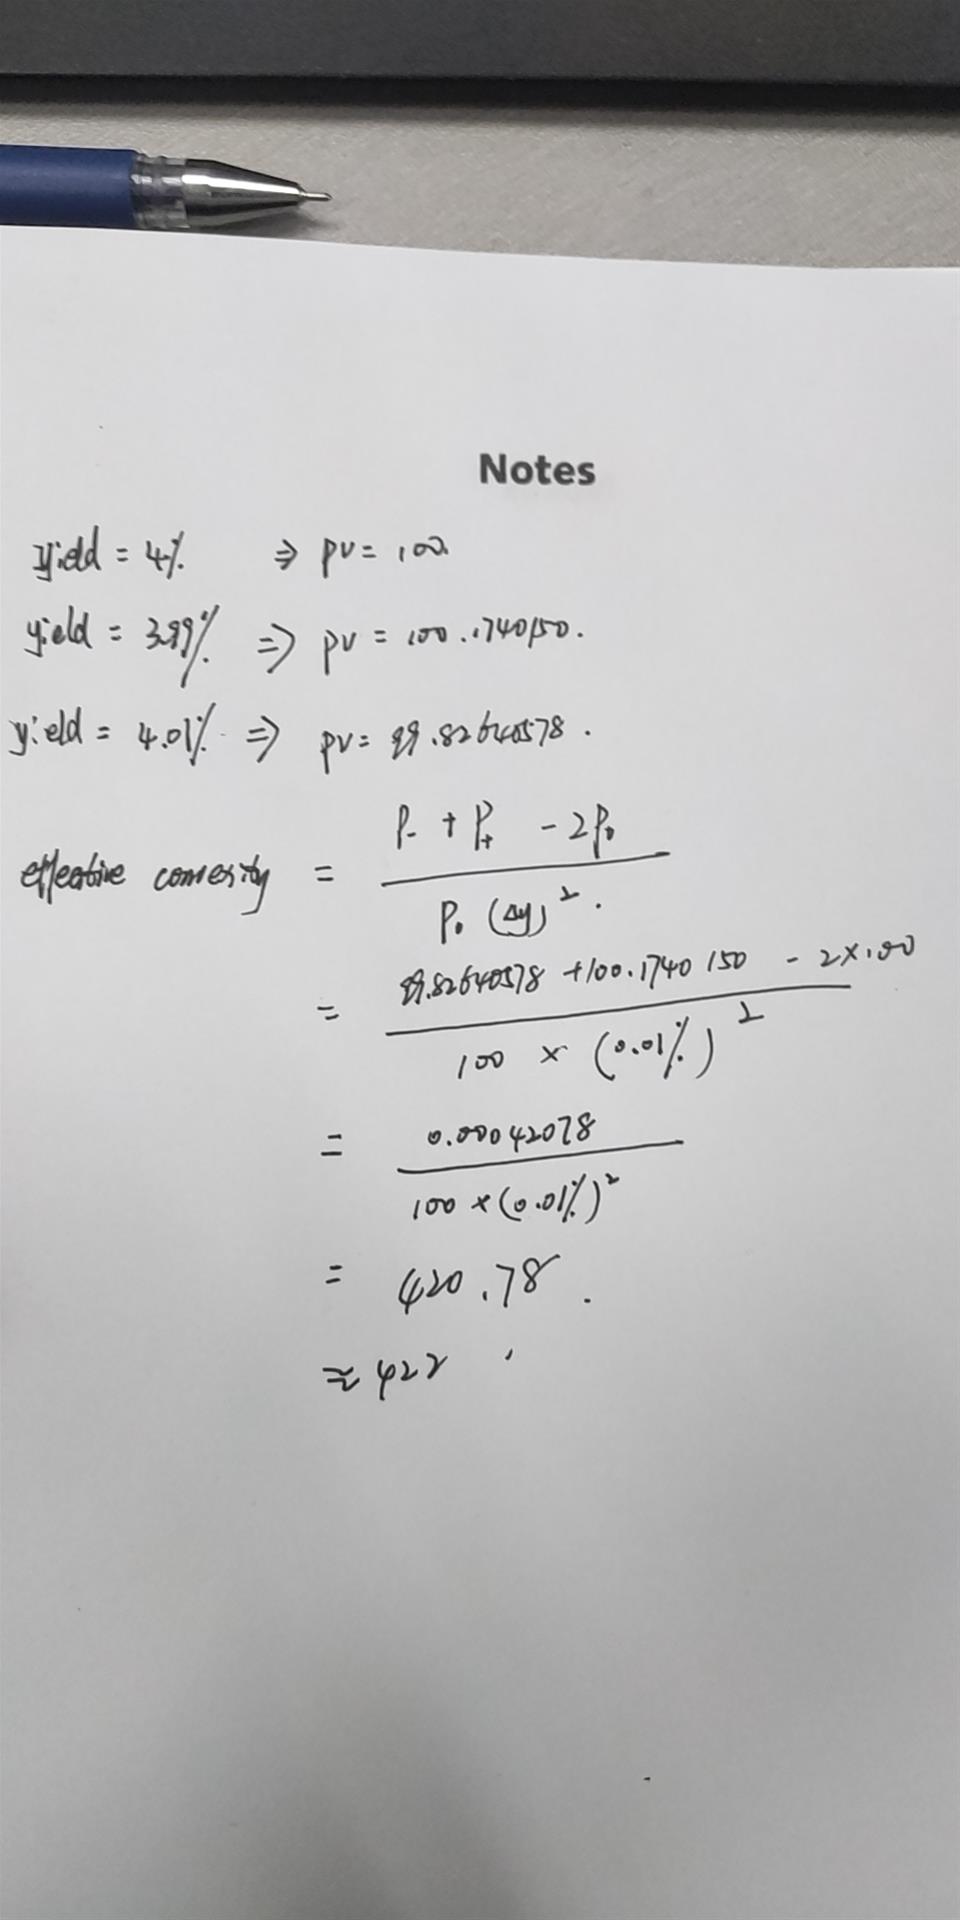 Notes
yield = 4% ⇒ pv = 100.
yield = 3.99% ⇒ pv = 100.1740150.
yield = 4.01% ⇒ pv = 99.82640578.
effective convexity = P- + P+ - 2P0
P0 (Δy)².
= 99.82640578 + 100.1740150 - 2×100
100 × (0.01%)²
= 0.00042078
100 × (0.01%)²
= 420.78.
≈ 422